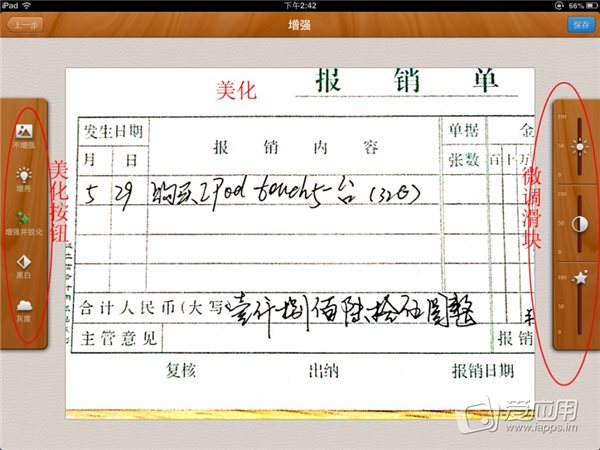 iPad 下午2:42 66%
上一步 增强 保存
美化
报销单
发生日期 报销内容 单据 金
月 日 张数 百 十 万
5 29 购买iPod touch5一台(32G)
合计人民币(大写) 壹仟捌佰陆拾伍圆整
主管意见 报销
复核 出纳 报销日期
美化按钮
不增强
增亮
增强并锐化
黑白
灰度
微调滑块
100
50
0
100
50
0
100
50
0
爱应用
www.iapps.im